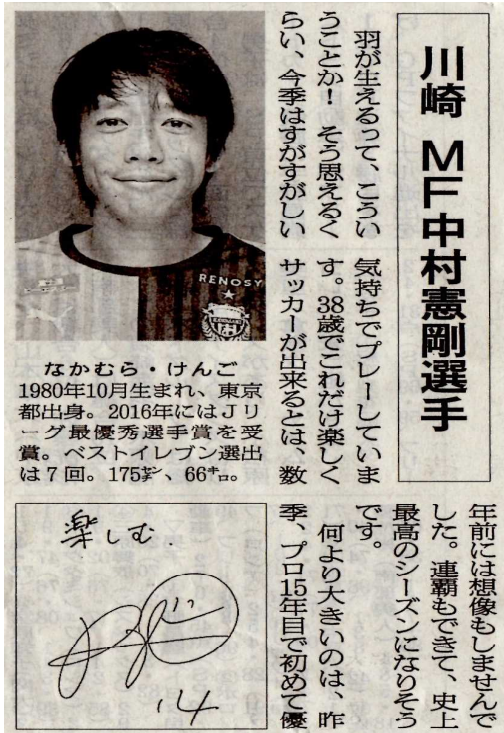 川崎 MF中村憲剛選手
羽が生えるって、こうい
うことか! そう思えるく
らい、今季はすがすがしい
気持ちでプレーしていま
す。38歳でこれだけ楽しく
サッカーが出来るとは、数
年前には想像もしませんで
した。連覇もできて、史上
最高のシーズンになりそう
です。
何より大きいのは、昨
季、プロ15年目で初めて優
RENOSY
なかむら・けんご
1980年10月生まれ、東京
都出身。2016年にはJリ
ーグ最優秀選手賞を受
賞。ベストイレブン選出
は7回。175㌢、66㌔。
楽しむ
14